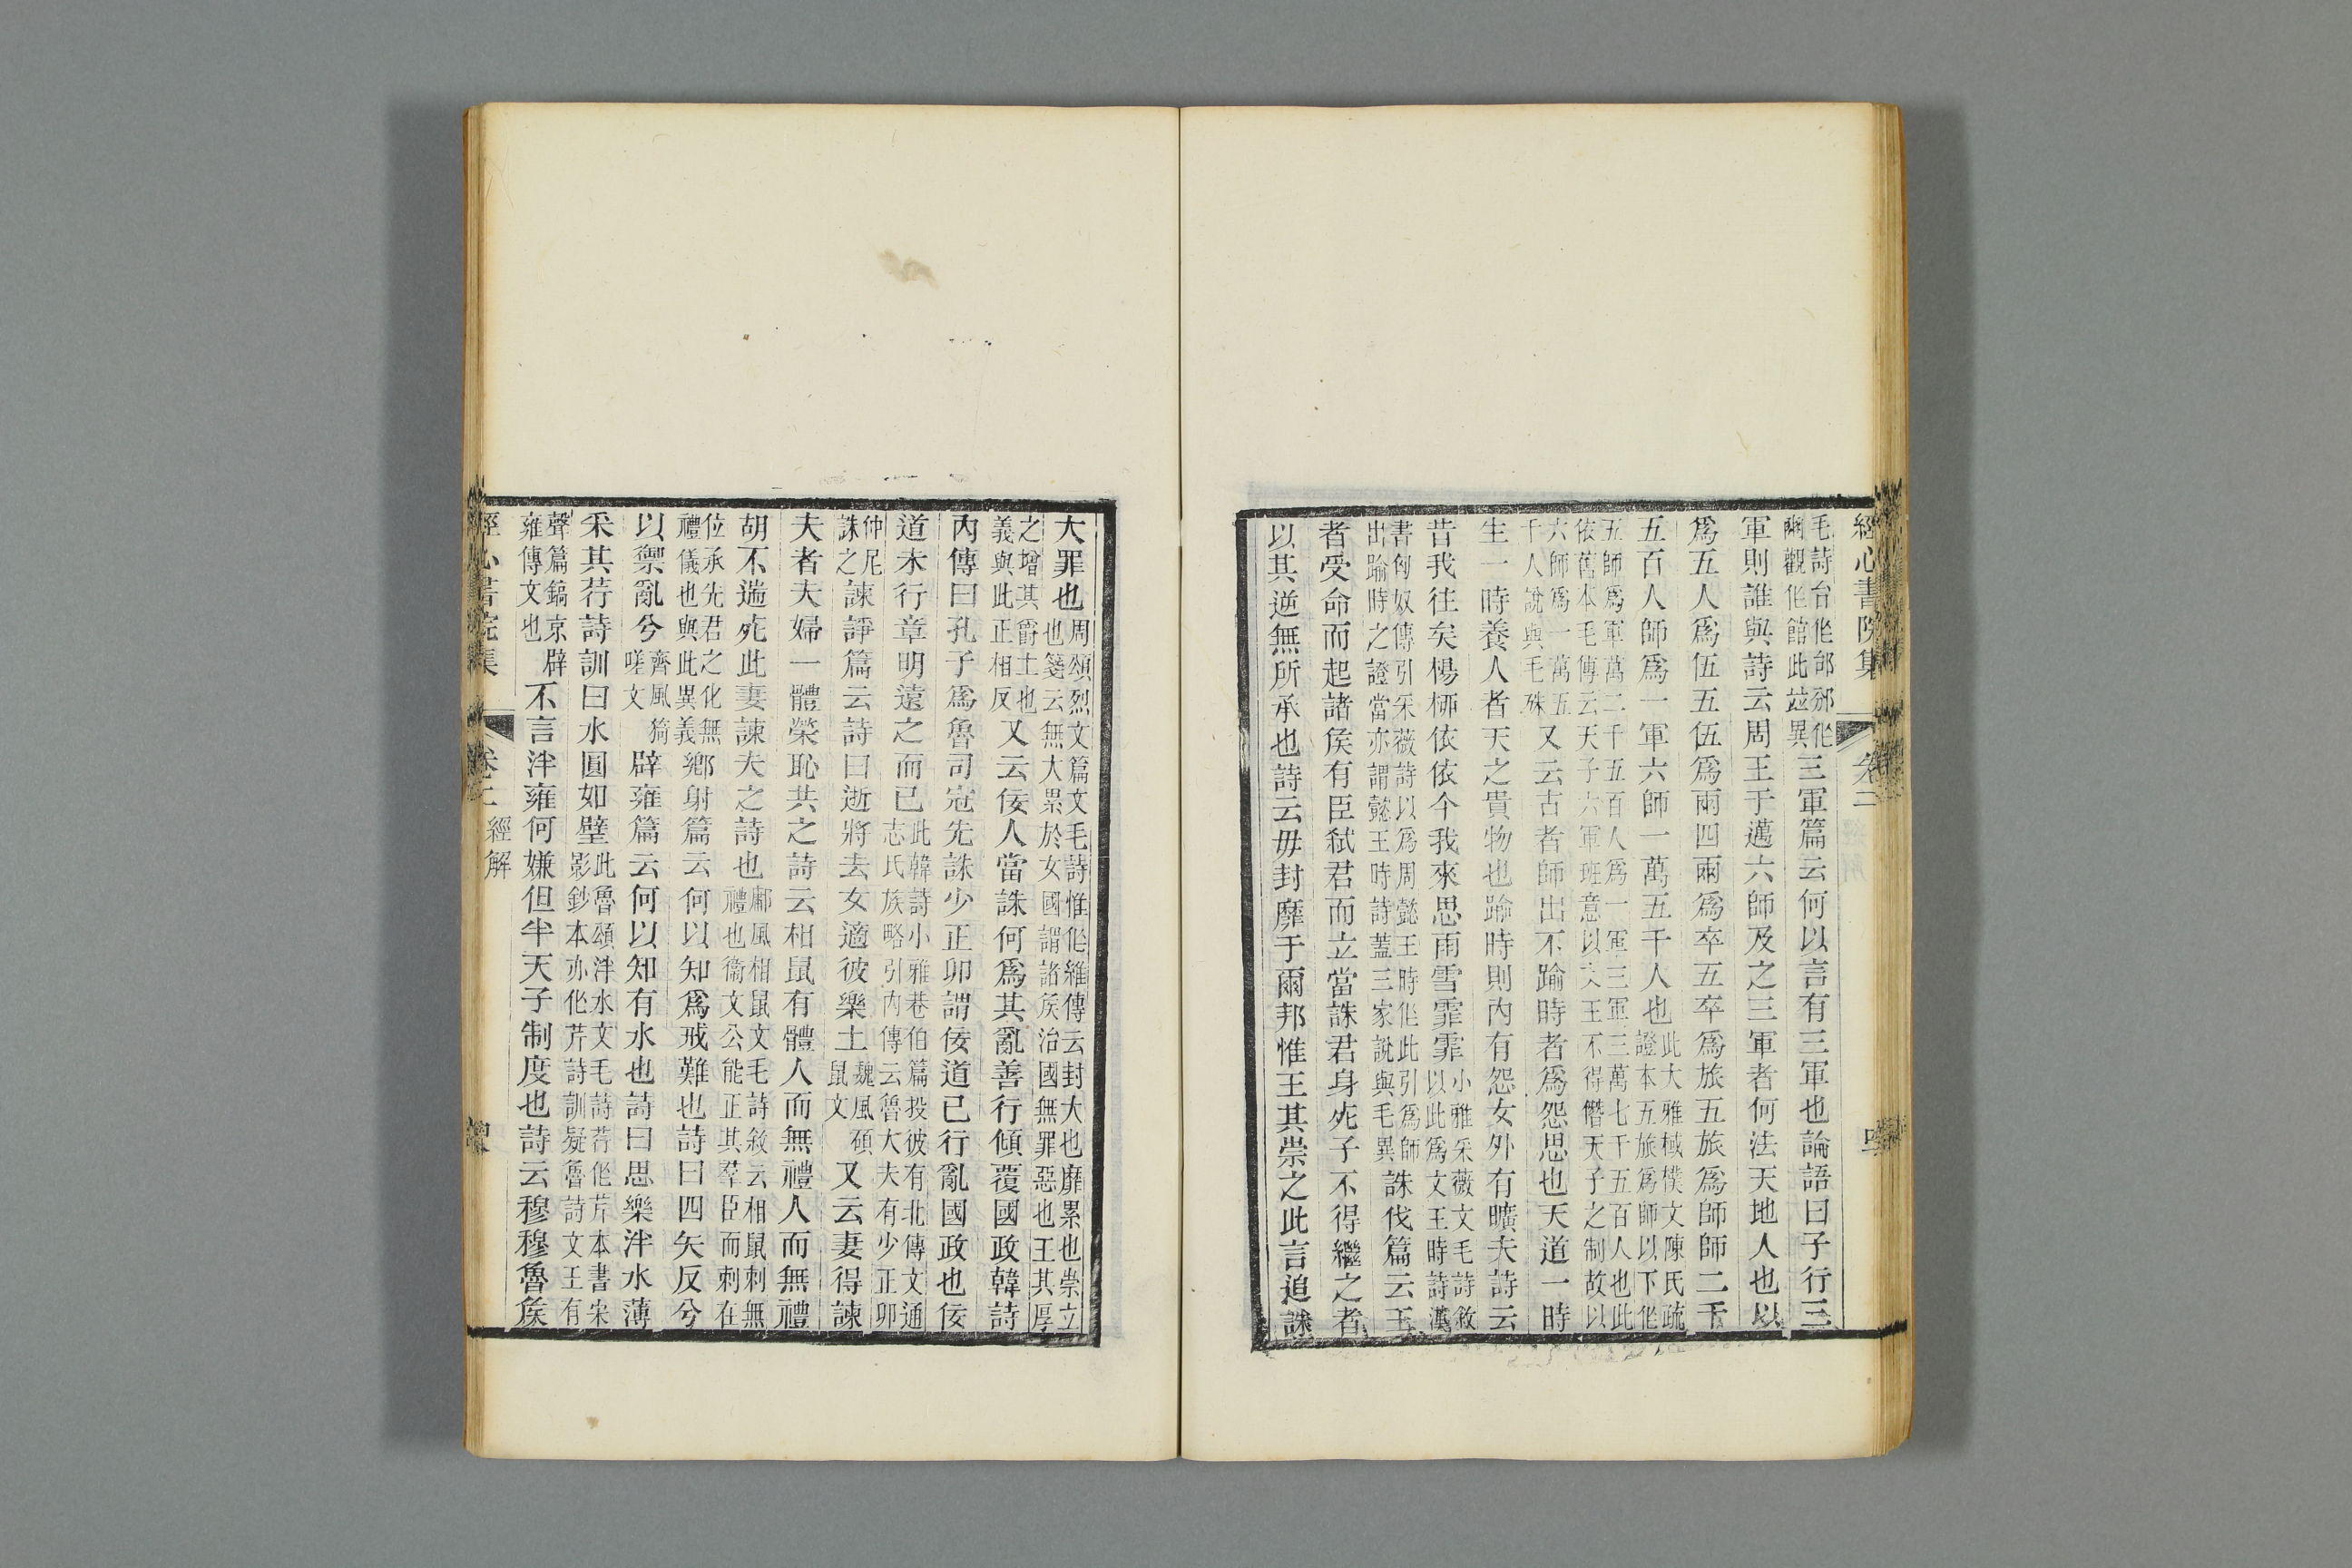 經心書院集 卷二
毛詩台作邰邠作
豳觀作館此竝異
三軍篇云何以言有三軍也論語曰子行三
軍則誰與詩云周王于邁六師及之三軍者何法天地人也以
爲五人爲伍五伍爲兩四兩爲卒五卒爲旅五旅爲師師二千
五百人師爲一軍六師一萬五千人也
此大雅棫樸文陳氏疏
證本五旅爲師以下作
五師爲軍萬二千五百人爲一軍三軍三萬七千五百人也此
依舊本毛傳云天子六軍班意以文王不得僭天子之制故以
六師爲一萬五
千人說與毛殊
又云古者師出不踰時者爲怨思也天道一時
生一時養人者天之貴物也踰時則內有怨女外有曠夫詩云
昔我往矣楊桺依依今我來思雨雪霏霏
小雅采薇文毛詩敘
以此爲文王時詩漢
書匈奴傳引采薇詩以爲周懿王時作此引爲師
出踰時之證當亦謂懿王時詩蓋三家說與毛異
誅伐篇云王
者受命而起諸矦有臣弒君而立當誅君身死子不得繼之者
以其逆無所承也詩云毋封靡于爾邦惟王其崇之此言追誅
大罪也
周頌烈文篇文毛詩惟作維傳云封大也靡累也崇立
也箋云無大累於女國謂諸矦治國無罪惡也王其厚
之增其爵土也
義與此正相反
又云佞人當誅何爲其亂善行傾覆國政韓詩
內傳曰孔子爲魯司寇先誅少正卯謂佞道已行亂國政也佞
道未行章明遠之而已
此韓詩小雅巷伯篇投彼有北傳文通
志氏族略引內傳云魯大夫有少正卯
仲尼
誅之
諫諍篇云詩曰逝將去女適彼樂土
魏風碩
鼠文
又云妻得諫
夫者夫婦一體榮恥共之詩云相鼠有體人而無禮人而無禮
胡不遄死此妻諫夫之詩也
鄘風相鼠文毛詩敘云相鼠刺無
禮也衞文公能正其羣臣而刺在
位承先君之化無
禮儀也與此異義
鄉射篇云何以知爲戒難也詩曰四矢反兮
以禦亂兮
齊風猗
嗟文
辟雍篇云何以知有水也詩曰思樂泮水薄
采其荇詩訓曰水圓如璧
此魯頌泮水文毛詩荇作芹本書宋
影鈔本亦作芹詩訓疑魯詩文王有
聲篇鎬京辟
雍傳文也
不言泮雍何嫌但半天子制度也詩云穆穆魯矦
經心書院集 卷二 經解